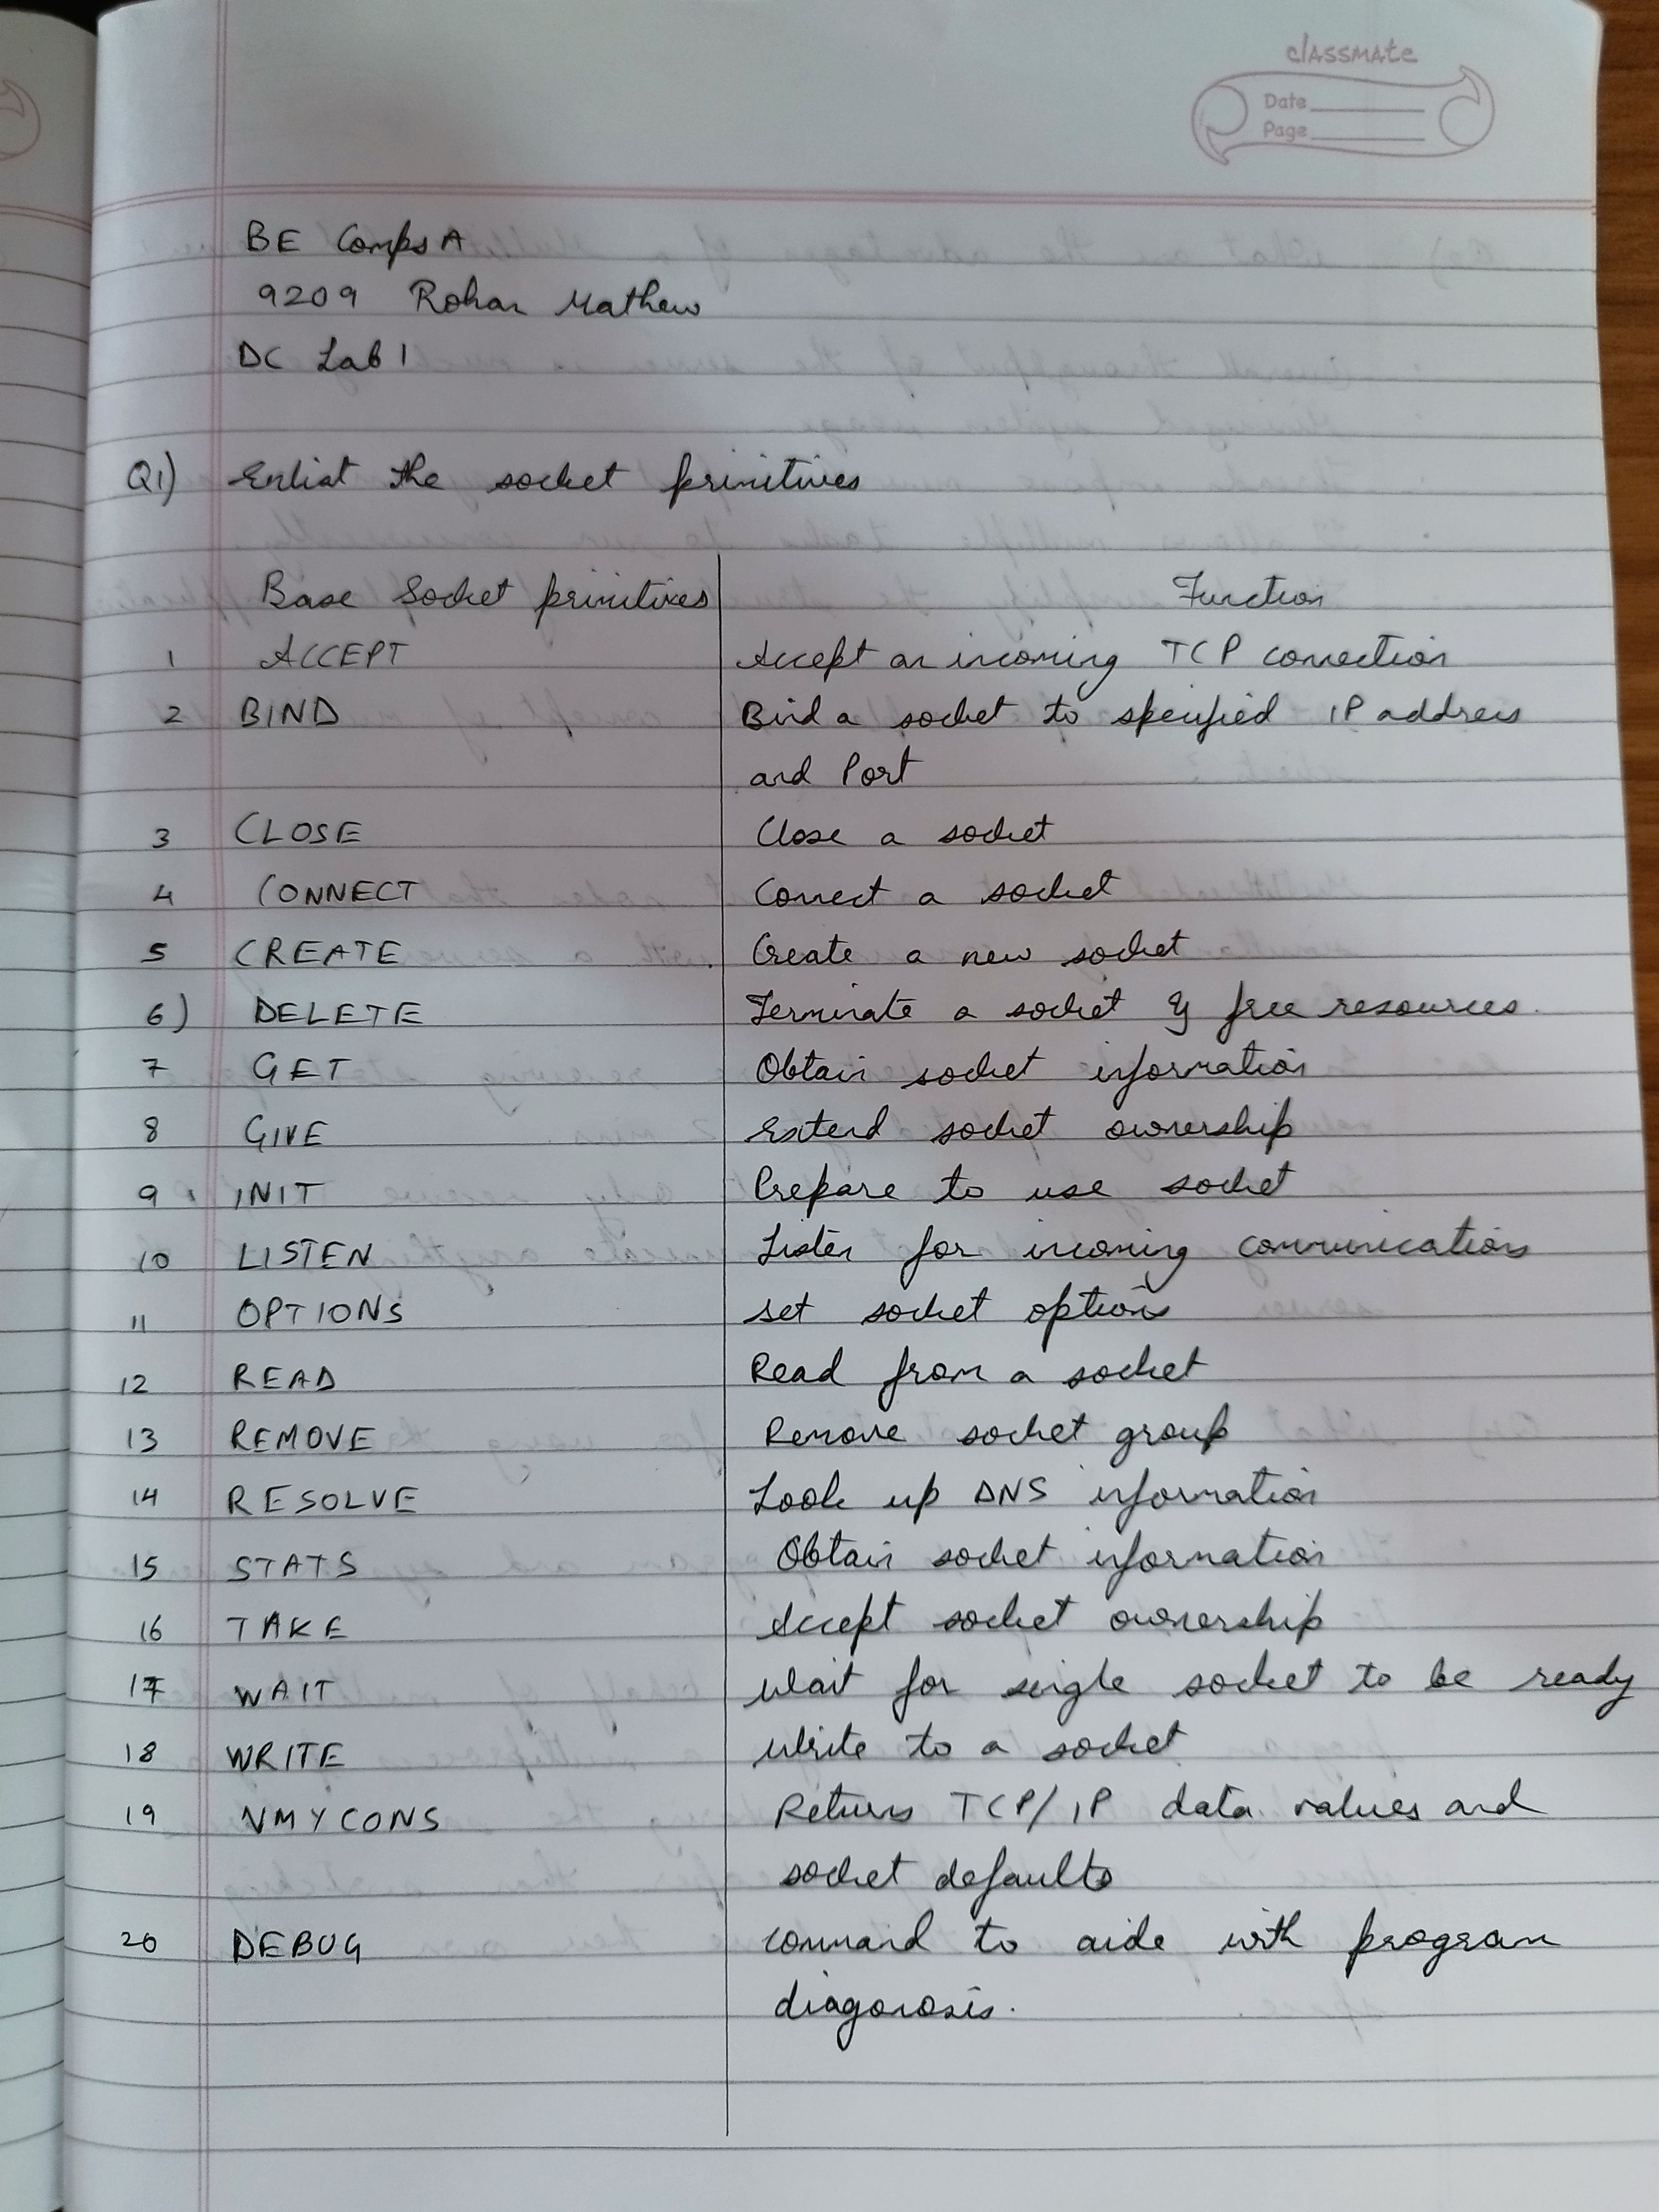 classmate
Date
Page
BE Comps A
9209 Rohan Mathew
DC Lab 1
Q1) Enlist the socket primitives
Base Socket primitives Function
1 ACCEPT Accept an incoming TCP connection
2 BIND Bind a socket to specified IP address
and Port
3 CLOSE Close a socket
4 CONNECT Connect a socket
5 CREATE Create a new socket
6) DELETE Terminate a socket & free resources.
7 GET Obtain socket information
8 GIVE Extend socket ownership
9 INIT Prepare to use socket
10 LISTEN Listen for incoming communications
11 OPTIONS Set socket options
12 READ Read from a socket
13 REMOVE Remove socket group
14 RESOLVE Look up DNS information
15 STATS Obtain socket information
16 TAKE Accept socket ownership
17 WAIT Wait for single socket to be ready
18 WRITE Write to a socket
19 VMYCONS Returns TCP/IP data values and
socket defaults
20 DEBUG Command to aide with program
diagonosis.